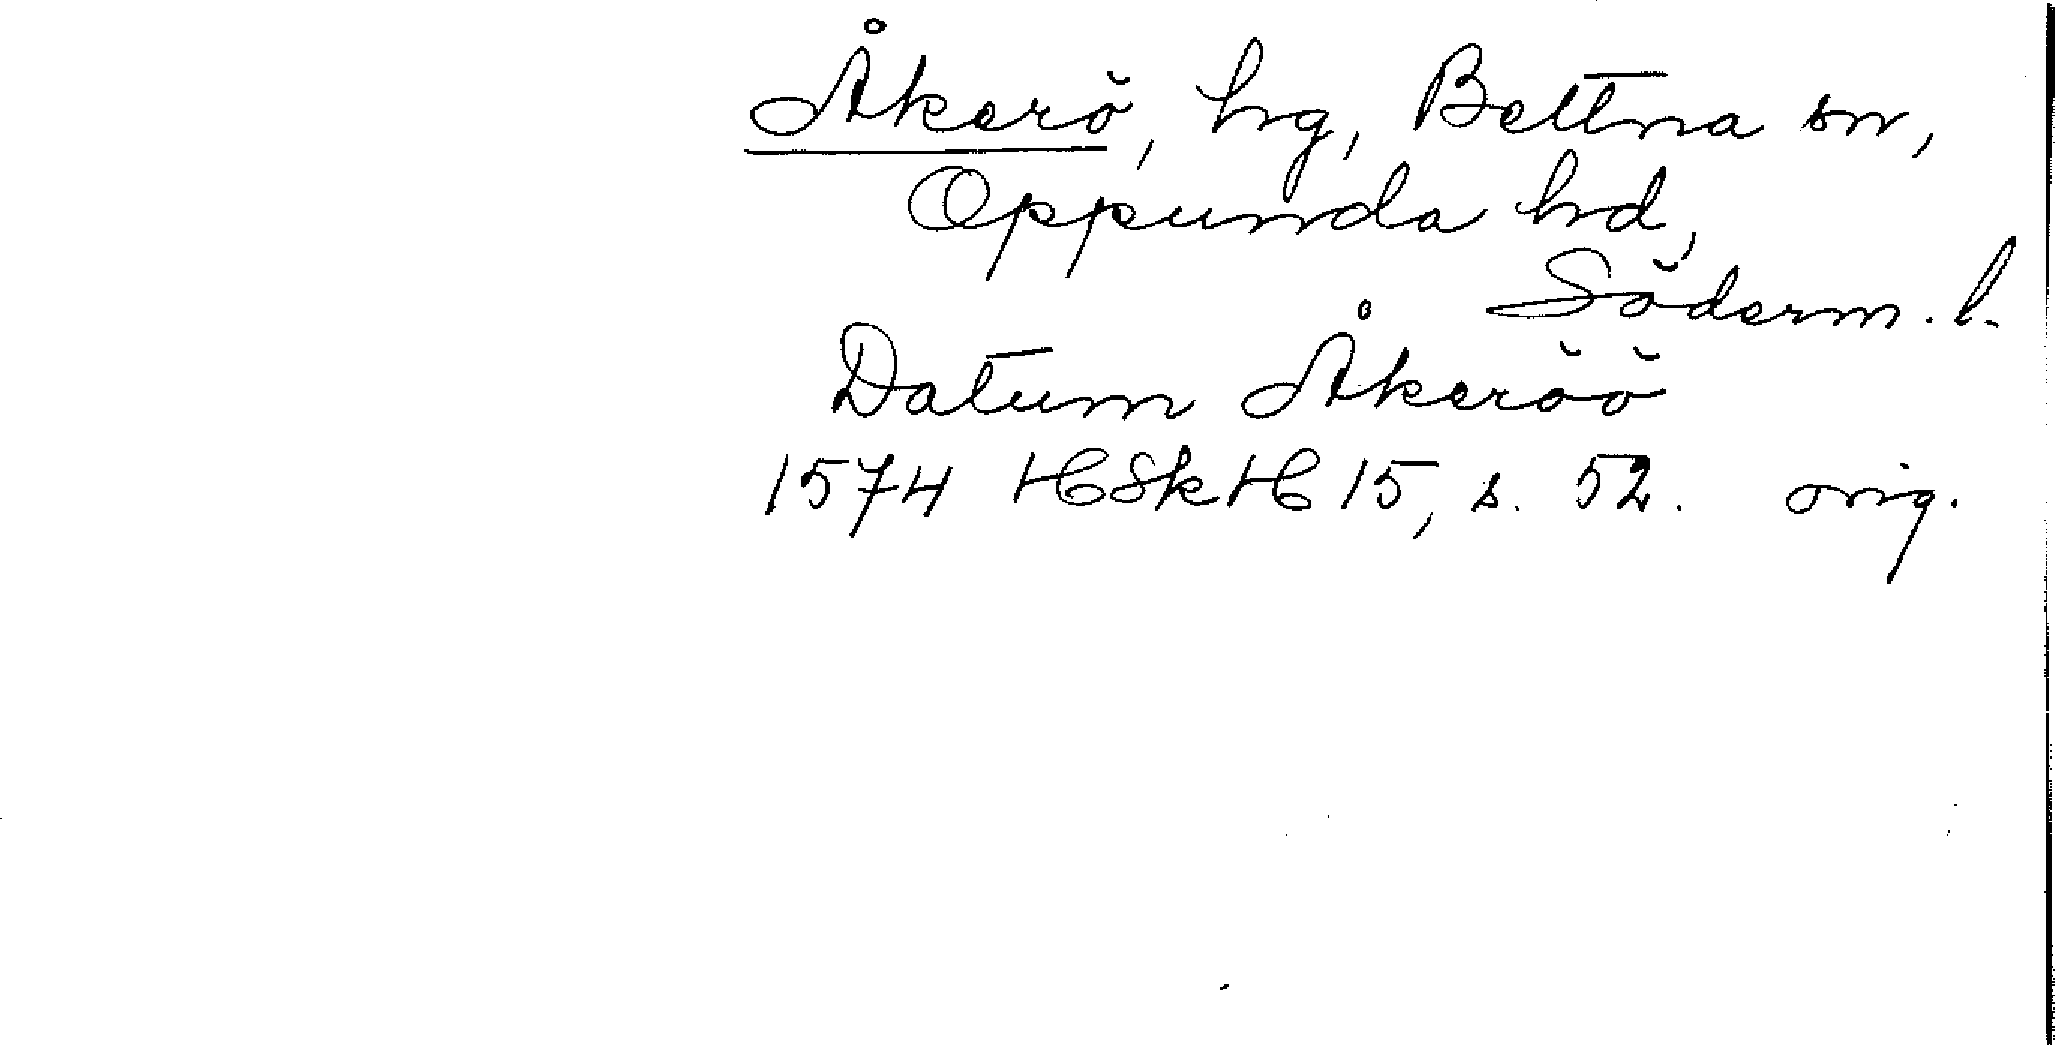 Åkerö, hg, Bettna sn,
Oppunda hd,
Söderm. l.
Datum Åkeröö
1574 HSkH 15, s. 52. orig.